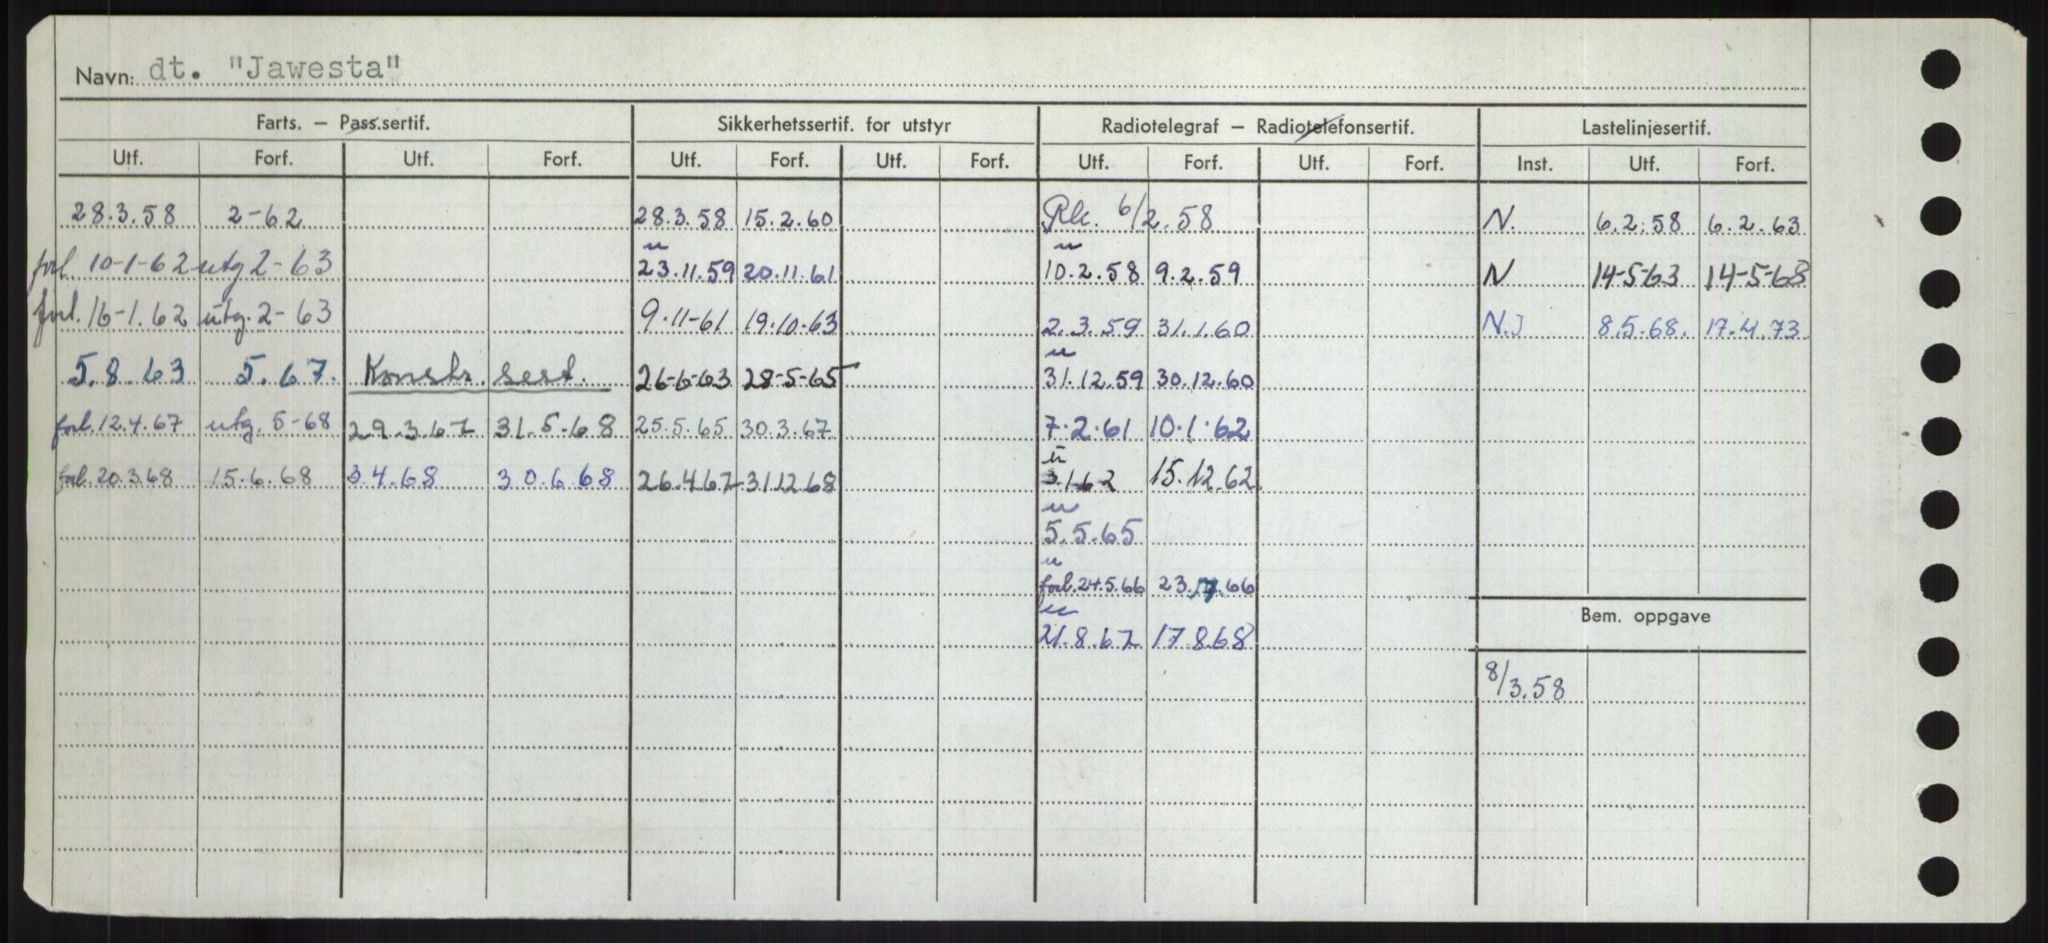 Navn: dt. "Jawesta"
Farts. – Pass.sertif. Sikkerhetssertif. for utstyr Radiotelegraf – Radiotelefonsertif. Lastelinjesertif.
Utf. Forf. Utf. Forf. Utf. Forf. Utf. Forf. Utf. Forf. Utf. Forf. Inst. Utf. Forf.
28.3.58 2-62 28.3.58 15.2.60 Rk. 6/2.58 N. 6.2.58 6.2.63
forl 10-1-62 utg 2-63 u 23.11.59 20.11.61 u 10.2.58 9.2.59 N 14-5-63 14-5-68
forl. 16-1.62 utg. 2-63 9.11-61 19.10.63 2.3.59 31.1.60 N.I 8.5.68. 17.4.73
5.8.63 5.67. Konstr. sert. 26-6-63 28-5-65 u 31.12.59 30.12.60
forl. 12.4.67 utg. 5-68 29.3.67 31.5.68 25.5.65 30.3.67 7.2.61 10.1.62
forl. 20.3.68 15.6.68 3.4.68 30.6.68 26.4.67 31.12.68 u 3.1.62 15.12.62
u 5.5.65
u forl. 24.5.66 23.7.66
Bem. oppgave
u 21.8.67 17.8.68
8/3.58